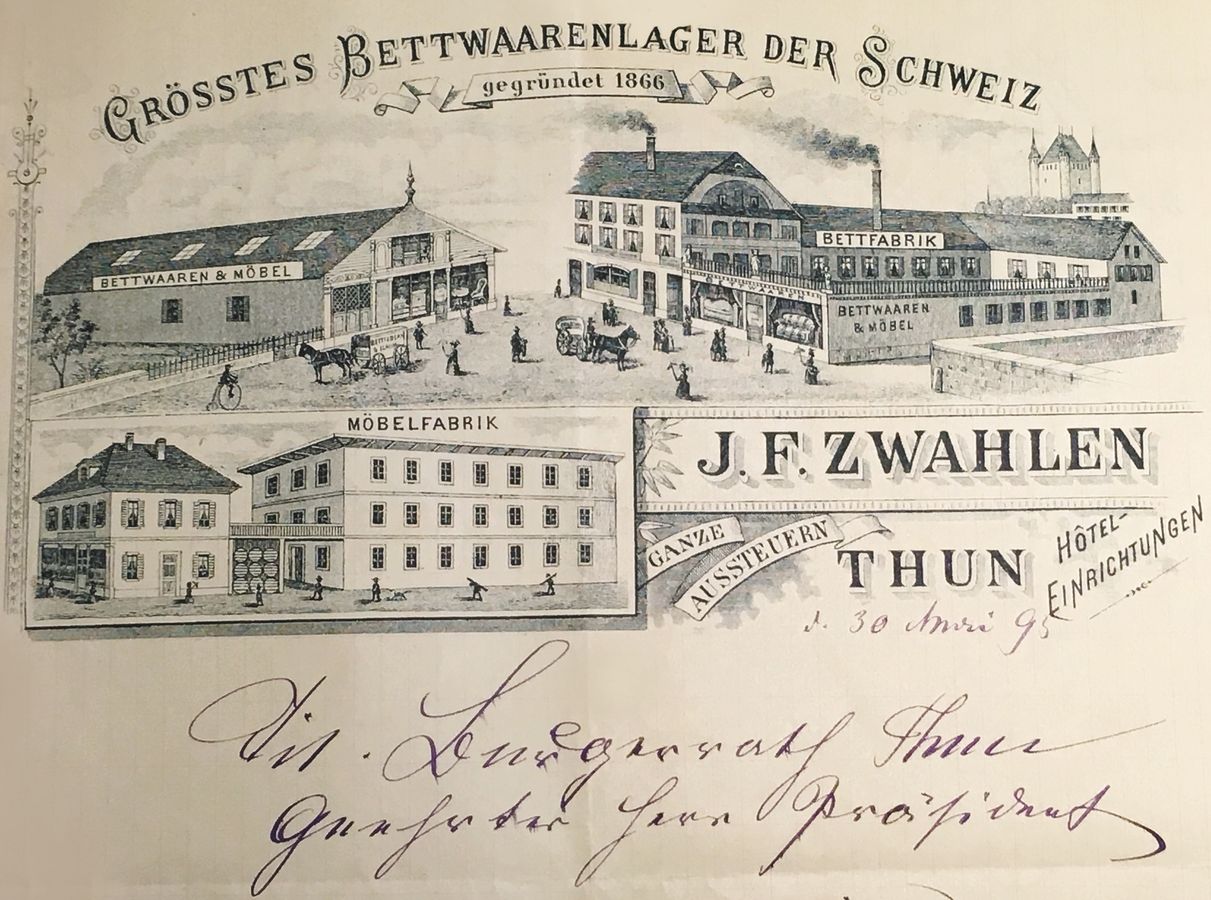 GRÖSSTES BETTWAARENLAGER DER SCHWEIZ
gegründet 1866
BETTFABRIK
BETTWAAREN & MÖBEL
BETTWAAREN
& MÖBEL
MÖBELFABRIK
J. F. ZWAHLEN
GANZE
AUSSTEUERN
THUN
HÔTEL-
EINRICHTUNGEN
d. 30
Tit. Burgerrath Thun
Geehrter Herr Präsident